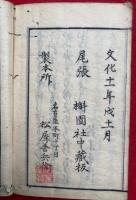 文化十一年戌十一月
尾張
樹園社中藏板
製本所
名古屋本町七丁目
松屋善兵衛